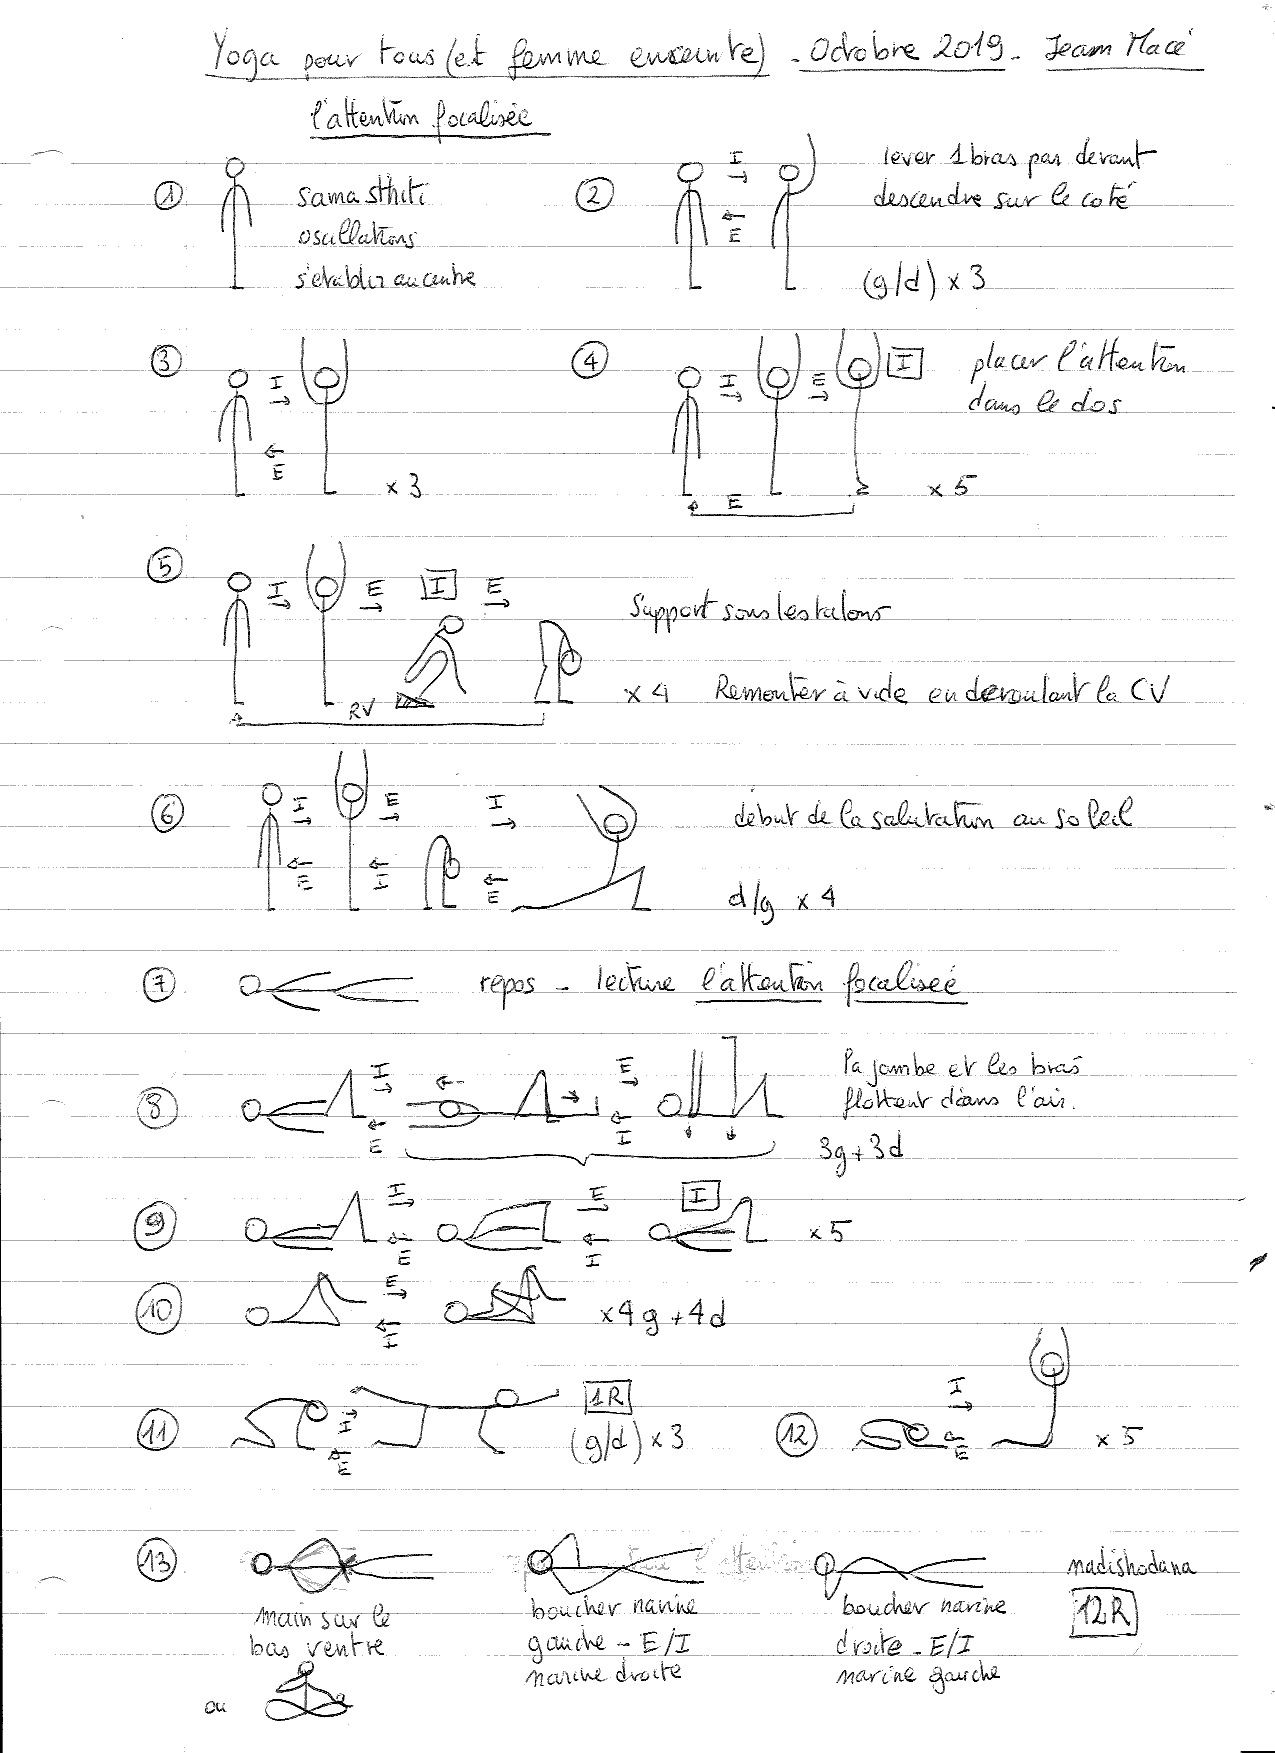 Yoga pour tous (et femme enceinte) - Octobre 2019 - Jean Macé
l'attention focalisée
① samasthiti
oscillations
s'établir au centre
② I E lever 1 bras par devant
descendre sur le coté
(g/d) x 3
③ I
E
x 3
④ I E I placer l'attention
dans le dos
E x 5
⑤ I E I E
Support sous les talons
RV x 4 Remonter à vide en déroulant la CV
⑥ I E I
E I E
début de la salutation au soleil
d/g x 4
⑦ repos - lecture l'attention focalisée
⑧ I E
E I
la jambe et les bras
flottent dans l'air.
3g + 3d
⑨ I E I
E I
x 5
⑩ E
I
x 4g + 4d
⑪ I
E
1R
(g/d) x 3
⑫ I
E
x 5
⑬ main sur le
bas ventre
ou
boucher narine
gauche - E/I
narine droite
boucher narine
droite - E/I
narine gauche
nadishodana
12R